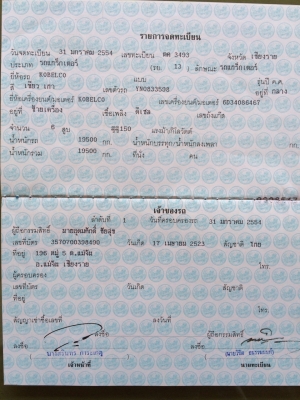 รายการจดทะเบียน
วันจดทะเบียน 31 มกราคม 2554 เลขทะเบียน ตค 3493 จังหวัด เชียงราย
ประเภท รถแทร็กเตอร์ (รย. 13 ) ลักษณะ รถแทร็กเตอร์
ยี่ห้อรถ KOBELCO แบบ รุ่นปี ค.ศ.
สี เขียว เทา เลขตัวรถ YN0833598 อยู่ที่ กลาง
ยี่ห้อเครื่องยนต์/มอเตอร์ KOBELCO เลขเครื่องยนต์/มอเตอร์ 6D34086467
อยู่ที่ ซ้ายเครื่อง เชื้อเพลิง ดีเซล เลขถังแก๊ส
จำนวน 6 สูบ ซีซี 150 แรงม้า/กิโลวัตต์
น้ำหนักรถ 19500 กก. น้ำหนักบรรทุก/น้ำหนักลงเพลา กก.
น้ำหนักรวม 19500 กก. ที่นั่ง คน
เจ้าของรถ
ลำดับที่ 1 วันที่ครอบครองรถ 31 มกราคม 2554
ผู้ถือกรรมสิทธิ์
เลขที่บัตร 3570700398400 วันเกิด 17 เมษายน 2523 สัญชาติ ไทย
ที่อยู่ 196 หมู่ 5 ต.แม่เจ๊ย
อ.แม่เจ๊ย เชียงราย โทร.
ผู้ครอบครอง
เลขที่บัตร วันเกิด สัญชาติ
ที่อยู่
โทร.
สัญญาเช่าซื้อเลขที่ ลงวันที่
ผู้ถือกรรมสิทธิ์
ลงชื่อ ลงชื่อ
เจ้าหน้าที่ นายทะเบียน